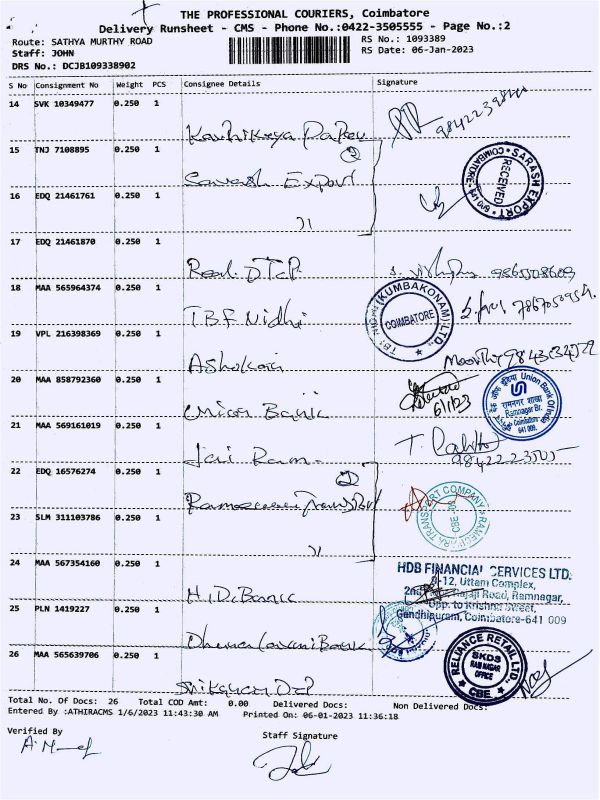 THE PROFESSIONAL COURIERS, Coimbatore
Delivery Runsheet - CMS - Phone No.:0422-3505555 - Page No.:2
Route: SATHYA MURTHY ROAD
RS No.: 1093389
Staff: JOHN
RS Date: 06-Jan-2023
DRS No.: DCJB109338902
S No Consignment No Weight PCS Consignee Details Signature
14 SVK 10349477 0.250 1
15 TNJ 7108895 0.250 1
Export
SARASH EXPORT
RECEIVED
COIMBATORE
16 EDQ 21461761 0.250 1
17 EDQ 21461870 0.250 1
18 MAA 565964374 0.250 1
TBF Nidhi
(KUMBAKONAM) LTD.
COIMBATORE
19 VPL 216398369 0.250 1
Ashokan
20 MAA 858792360 0.250 1
Union Bank
6/1/23
यूनियन बैंक ऑफ इंडिया Union Bank Of India
रामनगर शाखा
Ramnagar Br.
Coimbatore
641 009.
21 MAA 569161019 0.250 1
Jai Ram
22 EDQ 16576274 0.250 1
Transport
TRANSPORT COMPANY
CBE
23 SLM 311103786 0.250 1
24 MAA 567354160 0.250 1
H.D. Bank
HDB FINANCIAL SERVICES LTD.
Uttam Complex,
Rajaji Road, Ramnagar,
Opp. to Krishna Street,
Gandhipuram, Coimbatore-641 009
25 PLN 1419227 0.250 1
Bank
26 MAA 565639706 0.250 1
RELIANCE RETAIL LTD.
SKDS
RAM NAGAR
OFFICE
CBE
Total No. Of Docs: 26 Total COD Amt: 0.00 Delivered Docs: Non Delivered Docs:
Entered By :ATHIRACMS 1/6/2023 11:43:30 AM Printed On: 06-01-2023 11:36:18
Verified By
Staff Signature